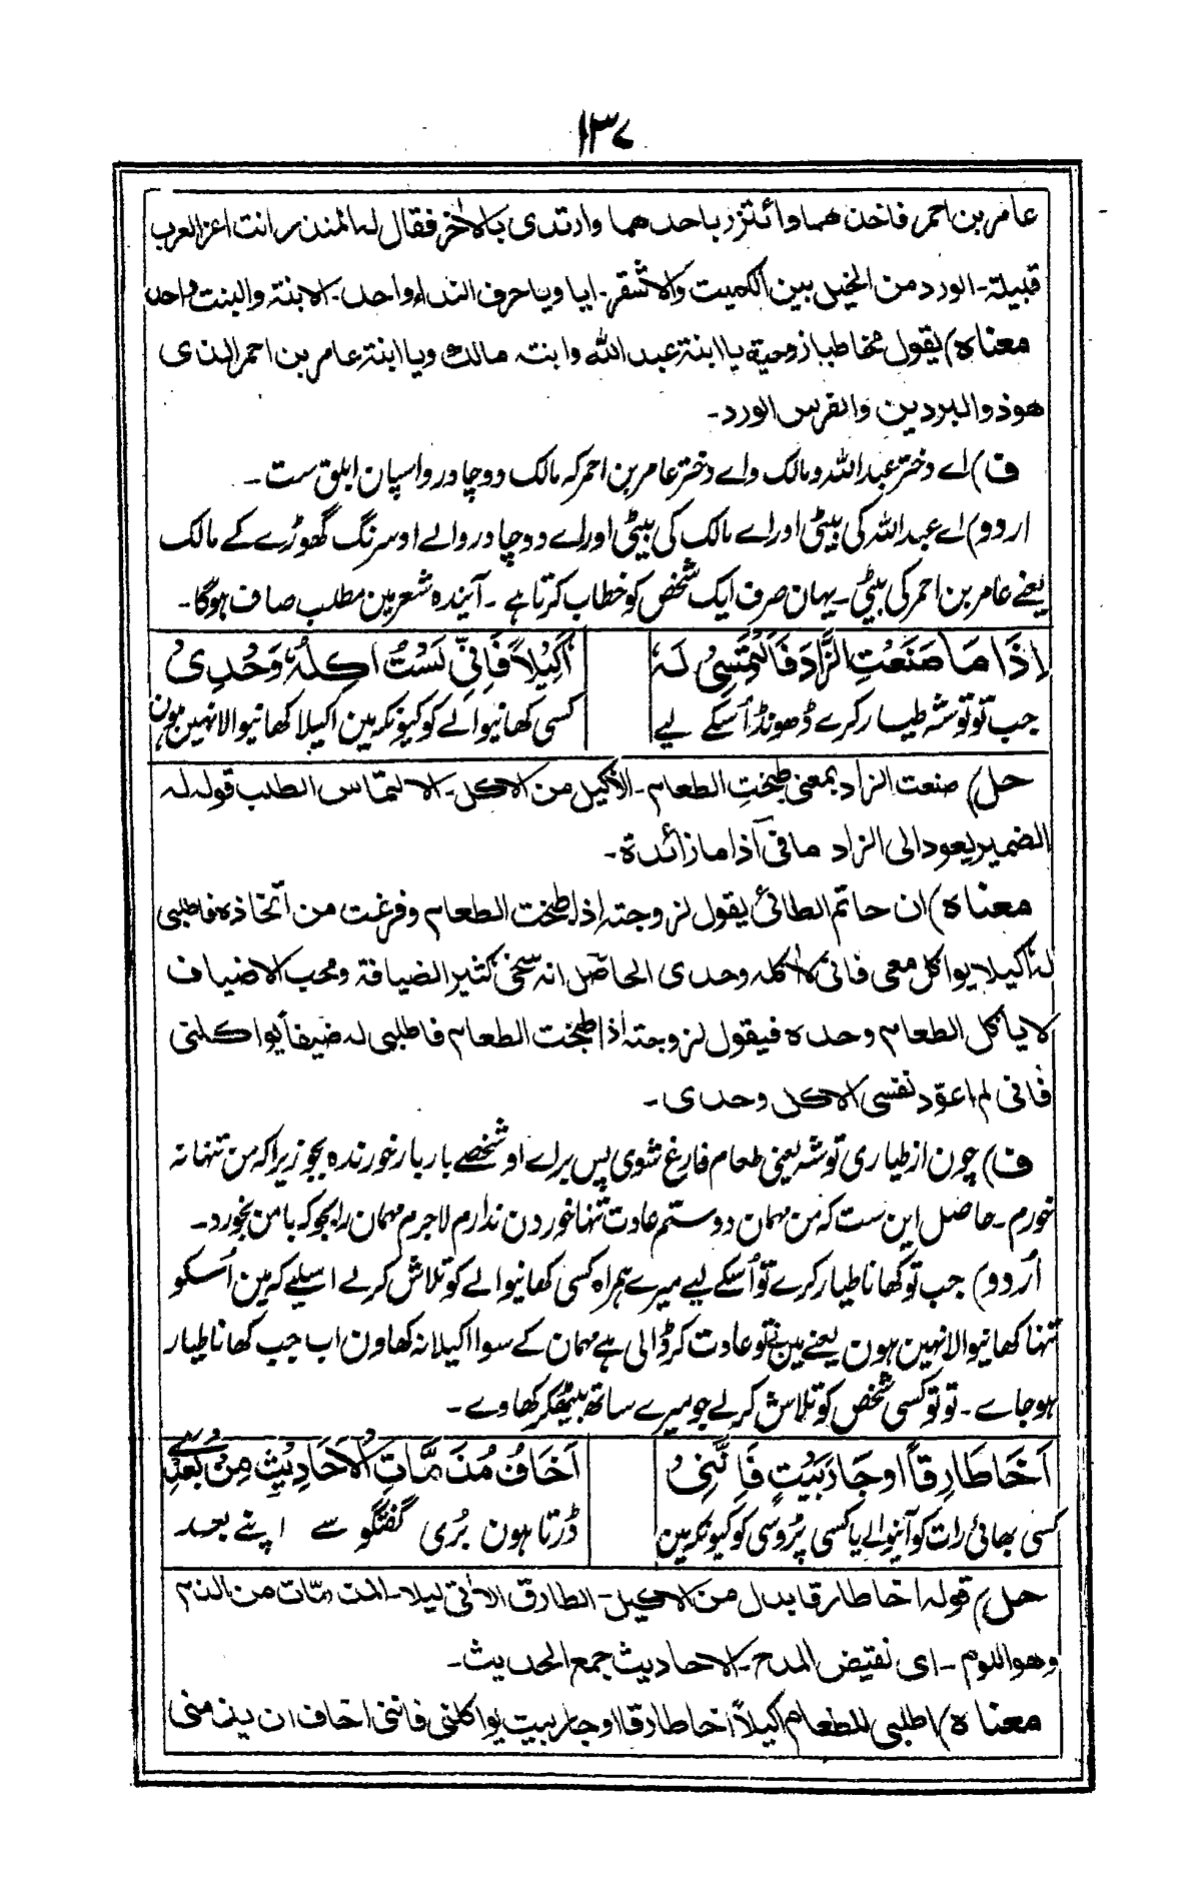 ۱۳۷
عامر بن احمر فاخذهما وائتزر باحدهما وارتدى بالاٰخر فقال له المنذر انت اعز العرب
قبيلة ۔ الورد من الخيل بين الكميت والاشقر ۔ ايا ويا حرف النداء واحد ۔ الابنة والبنت واحد
معناه) يقول مخاطبا زوجته يا ابنة عبد الله وابنة مالك ويا ابنة عامر بن احمر الذى
هو ذو البردين والفرس الورد ۔
ف) اے دختر عبد اللہ و مالک واے دختر عامر بن احمر کہ مالک دو چادر و اسپان ابلق ست ۔
اردو) اے عبد اللہ کی بیٹی اور اے مالک کی بیٹی اور اے دو چادر والے اور سرنگ گھوڑے کے مالک
یعنے عامر بن احمر کی بیٹی ۔ یہان صرف ایک شخص کو خطاب کرتا ہے ۔ آیندہ شعر مین مطلب صاف ہوگا ۔
اِذَا مَا صَنَعْتِ الزَّادَ فَالْتَمِسِىْ لَهٗ اَكِيْلًا فَاِنِّىْ لَسْتُ اٰكِلَهٗ وَحْدِىْ
جب تو توشہ طیار کرے ڈھونڈ اُسکے لیے کسی کھانیوالے کو کیونکہ مین اکیلا کھانیوالا نہین ہون
حل) صنعت الزاد بمعنى طبختِ الطعام ۔ الاكيل من الاكل ۔ الالتماس الطلب قوله له
الضمير يعود الى الزاد ما فى اذا ما زائدة ۔
معناه) ان حاتم الطائى يقول لزوجته اذا طبخت الطعام وفرغت من اتخاذه فاطلبى
له اكيلا يواكل معى فانى لا اٰكله وحدى الحاصل انه سخى كثير الضيافة ومحب الاضياف
لا ياكل الطعام وحده فيقول لزوجته اذا طبخت الطعام فاطلبى له ضيفا يواكلنى
فانى لم اعوّد نفسى الاكل وحدى ۔
ف) چون از طیاری توشہ یعنی طعام فارغ شوی پس براے او شخصے بار بار خورندہ بجو زیرا کہ من تنہا نہ
خورم ۔ حاصل این ست کہ من مہمان دوستم عادت تنہا خوردن ندارم لاجرم مہمان را بجو کہ با من بخورد ۔
اُردو) جب تو کھانا طیار کرے تو اُسکے لیے میرے ہمراہ کسی کھانیوالے کو تلاش کر لے اسلیے کہ مین اُسکو
تنہا کھانیوالا نہین ہون یعنے مین نے تو عادت کر ڈالی ہے مہمان کے سوا اکیلا نہ کھاون اب جب کھانا طیار
ہو جاے ۔ تو تو کسی شخص کو تلاش کر لے جو میرے ساتھ بیٹھکر کھاوے ۔
اَخَا طَارِقًا اَوْ جَارَ بَيْتٍ فَاِنَّنِىْ اَخَافُ مُذَمَّاتِ الْاَحَادِيْثِ مِنْ بَعْدِىْ
کسی بھائی رات کو آنیوالے یا کسی پڑوسی کو کیونکہ مین ڈرتا ہون بُری گفتگو سے اپنے بعد
حل) قوله اخا طارقا بدل من الاكيل ۔ الطارق الاٰتى ليلا ۔ المذمّات من الذم
وهو اللوم ۔ اى نقيض المدح ۔ الاحاديث جمع الحديث ۔
معناه) اطلبى للطعام اكيلاً اخا طارقا او جار بيت يواكلنى فاننى اخاف ان يذمنى